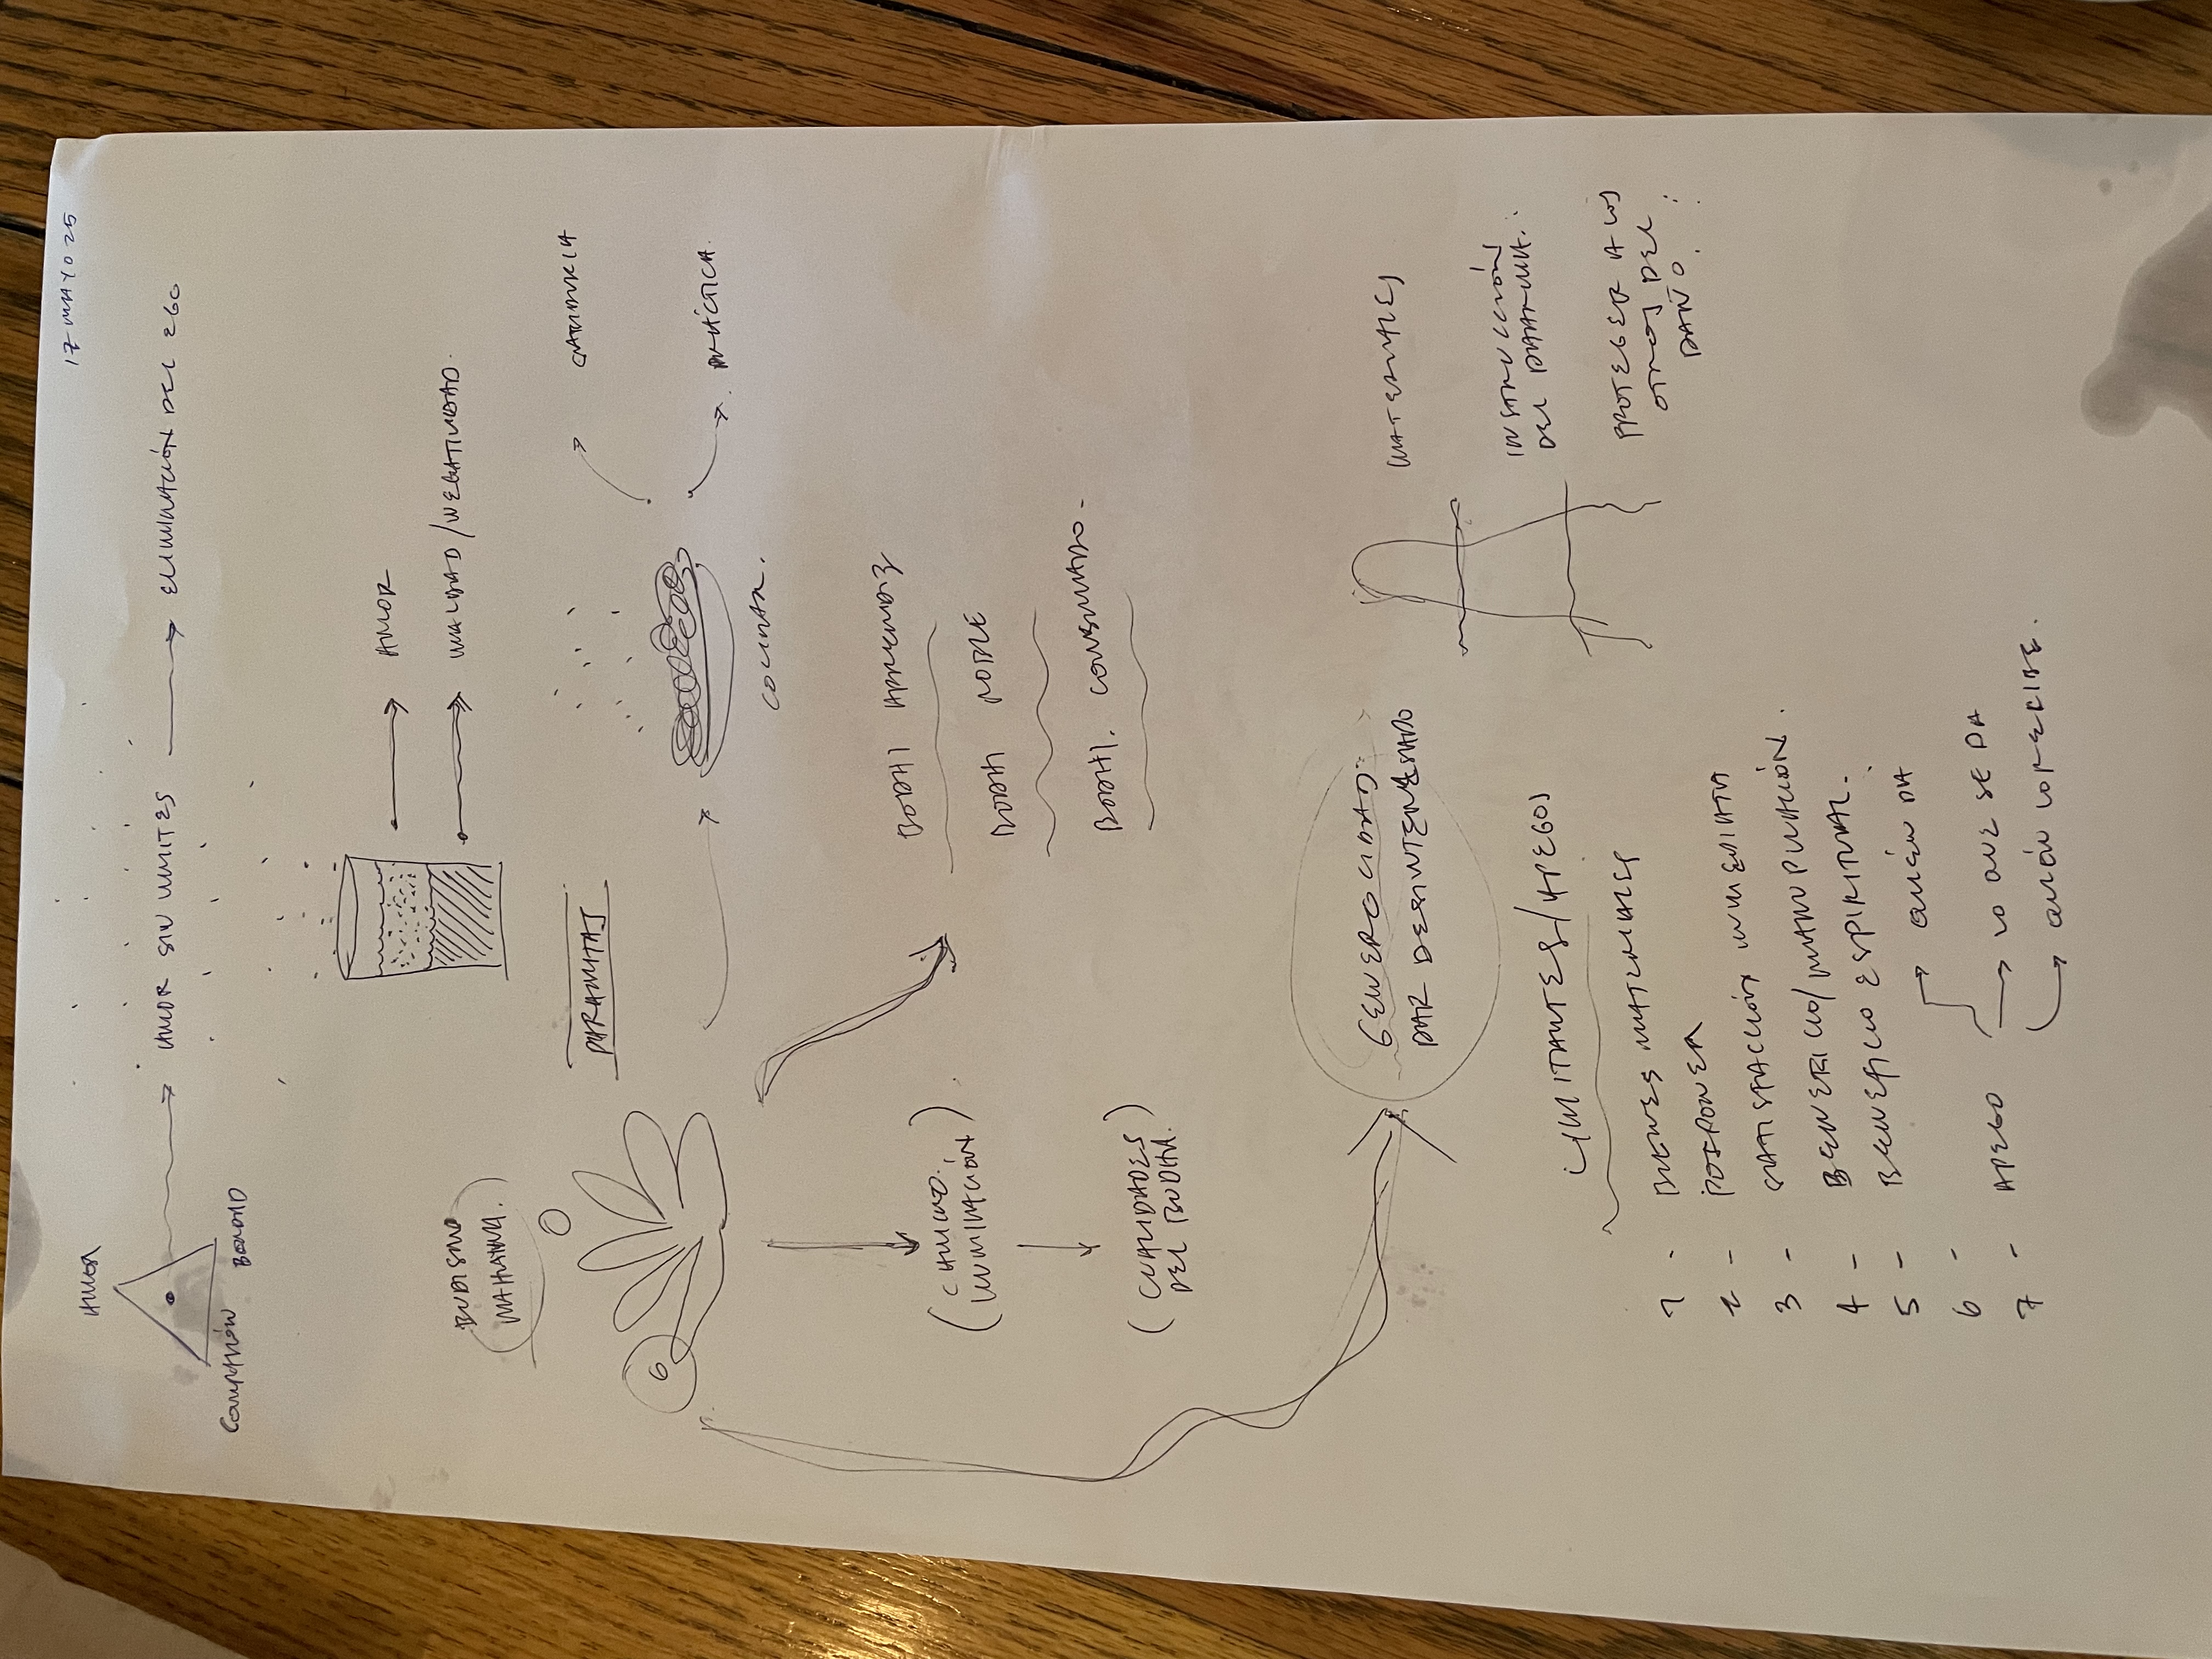 17 MAYO 25
AMOR
COMPASIÓN
BONDAD
AMOR SIN LIMITES
ELIMINACIÓN DEL EGO
AMOR
MALDAD / NEGATIVIDAD.
BUDISMO
MAHAYANA.
PARAMITAS
SABIDURIA
PRÁCTICA.
COCINAR.
6
(CAMINO.
ILUMINACIÓN)
(CUALIDADES
DEL BUDDHA.)
BODHI APRENDIZ
BODHI NOBLE
BODHI. CONSUMADO.
GENEROCIDAD:
DAR DESINTERESADO
MATERIALES
INSTRUCCIÓN
DEL DHARMA.
PROTEGER A LOS
OTROS DEL
DAÑO.
LIMITANTES / APEGOS
1 - BIENES MATERIALES
2 - POSPONER
3 - SATISFACCIÓN INMEDIATA
4 - BENEFICIO / MANIPULACIÓN.
5 - BENEFICIO ESPIRITUAL.
6 -
7 -
APEGO
QUIÉN DA
LO QUE SE DA
QUIÉN LO RECIBE.